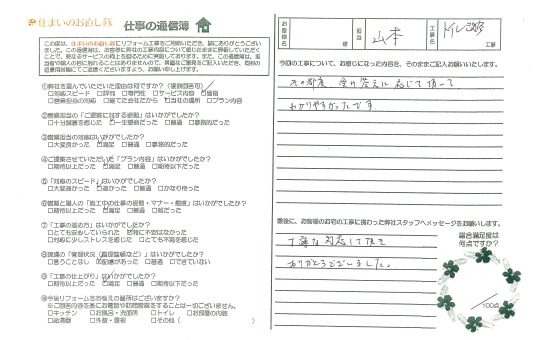 住まいのお直し隊 仕事の通信簿
この度は、住まいのお直し隊にリフォーム工事をご用命いただき、誠にありがとうござい
①弊社を選んでいただいた理由は何ですか?(複数回答可)
□対応スピード □評判 □専門性 □サービス内容 □価格
□営業担当の対応 □建てた会社だから □当社の場所 □プラン内容
②営業担当の「ご提案に対する姿勢」はいかがでしたか?
□十分誠意を感じた □一生懸命だった □普通 □事務的だった
③営業担当の対応はいかがでしたか?
□大変良かった □満足 □普通 □事務的だった
④ご提案させていただいた「プラン内容」はいかがでしたか?
□期待以上だった □満足 □普通 □期待以下だった
⑤「対応のスピード」はいかがでしたか?
□大変速かった □速かった □普通 □かなり待った
⑥営業と職人の「施工中の仕事の姿勢・マナー・態度」はいかがでしたか?
□期待以上だった □満足 □普通 □雑だった
⑦「工事の進め方」はいかがでしたか?
□とても安心していられた □特に不安はなかった
□対応に少しストレスを感じた □とても不満を感じた
⑧現場の「管理状況(整理整頓など)」はいかがでしたか?
□言うことなし □配慮があった □普通 □できていない
⑨「工事の仕上がり」はいかがでしたか?
□期待以上だった □満足 □普通 □期待以下だった
⑩今後リフォームをお考えの箇所はございますか?
□キッチン □お風呂・洗面所 □トイレ □お部屋の内装
□給湯器 □外壁・屋根 □その他( )
お客様名 様 担当 山本 工事名 トイレ改修 工事
今回の工事について、お感じになった内容を、そのままご記入お願いいたします。
その都度 質の答えに応じて頂いて
わかりやすかったです。
最後に、お客様のお宅の工事に携わった弊社スタッフへメッセージをお願いします。
丁寧な対応して頂き
ありがとうございました。
総合満足度は
何点ですか?
/100点